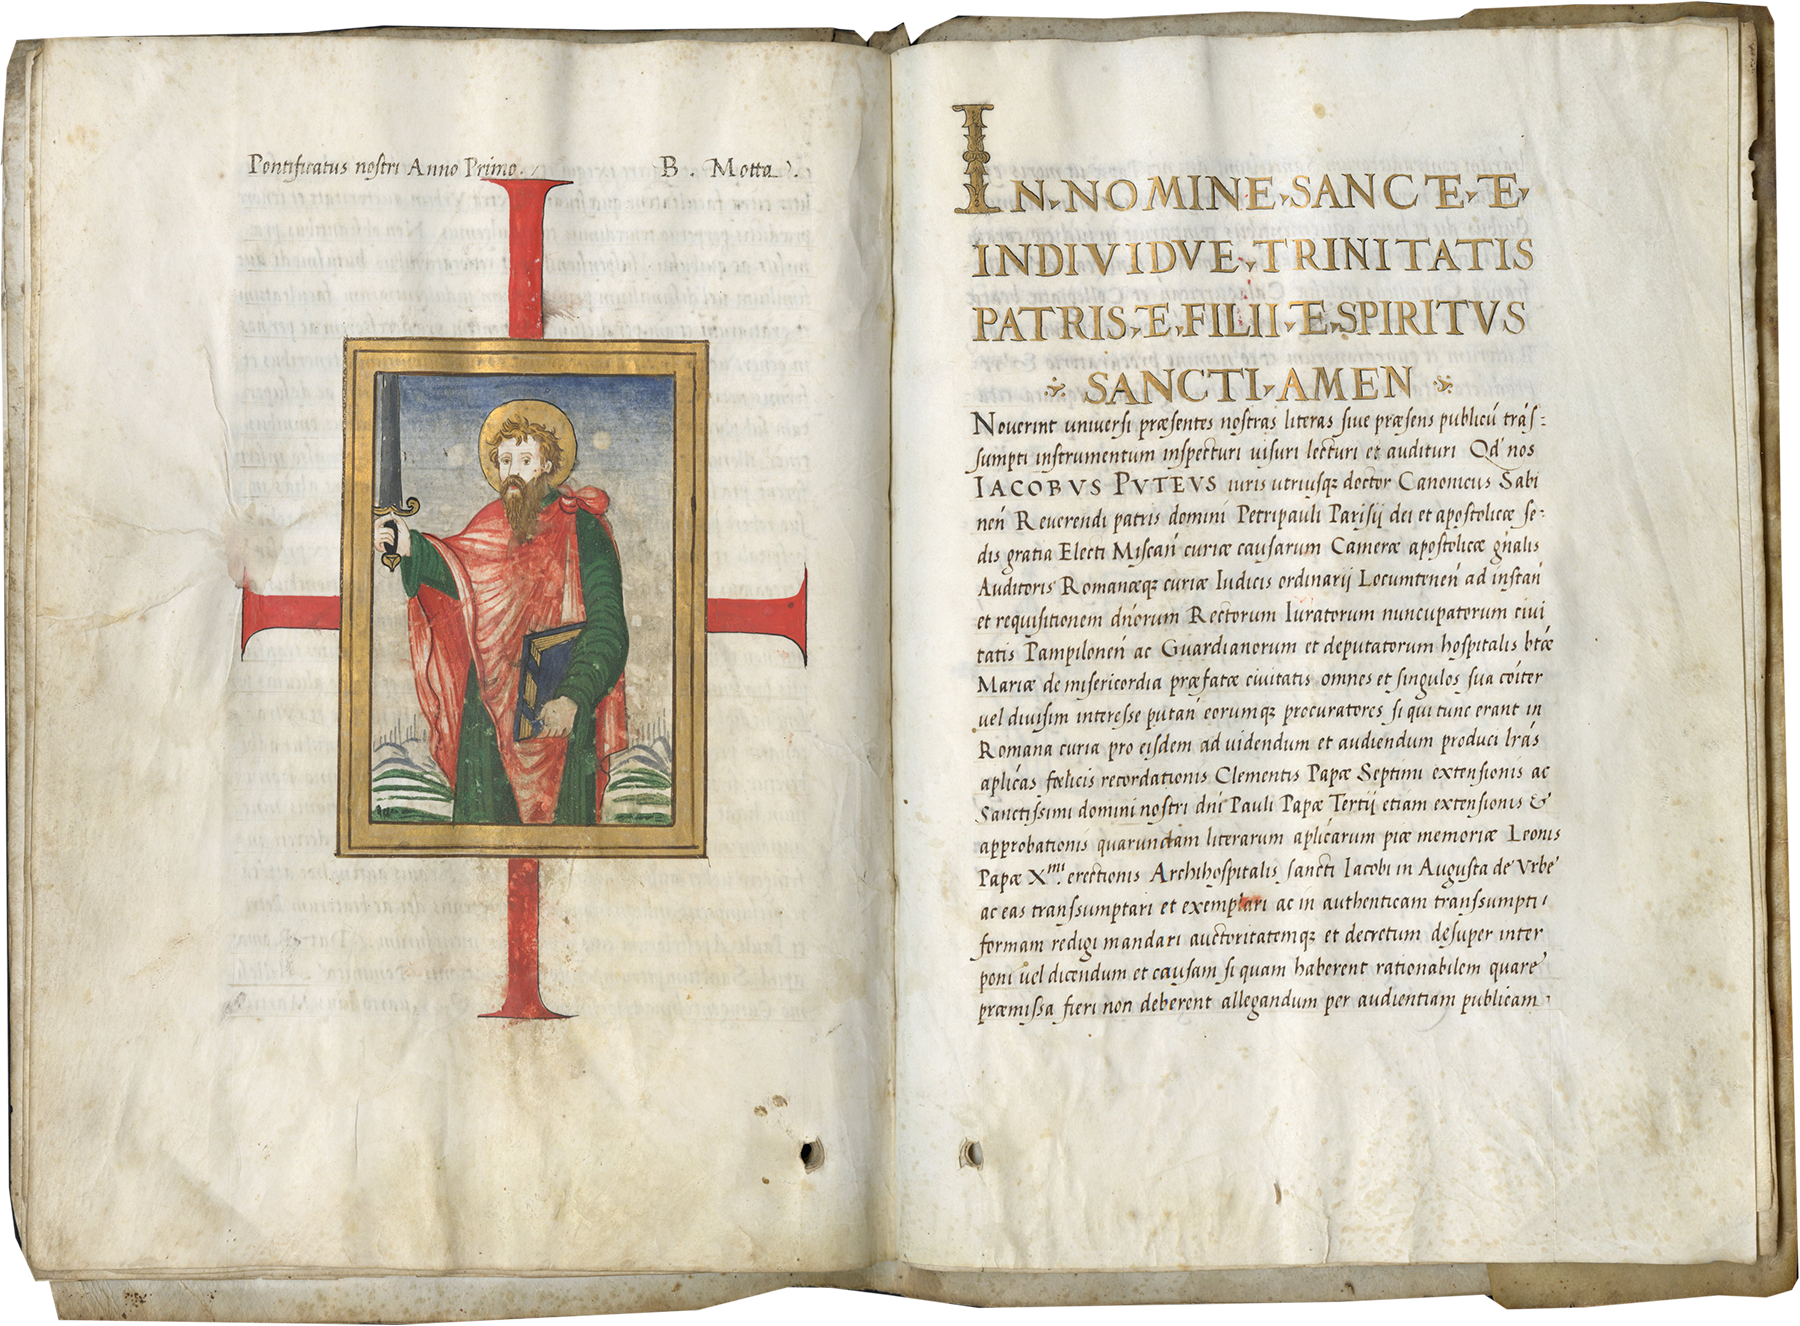 Pontificatus nostri Anno Primo. B. Motta.
IN NOMINE SANCTE E
INDIVIDVE TRINITATIS
PATRIS E FILII E SPIRITVS
SANCTI AMEN
Noverint universi præsentes nostras literas sive præsens publicū trās-
sumpti instrumentum inspecturi visuri lecturi et audituri Qd nos
IACOBVS PVTEVS iuris utriusqz doctor Canonicus Sabi
neñ Reverendi patris domini Petripauli Parisij dei et apostolicæ se-
dis gratia Electi Miscañ curiæ causarum Cameræ apostolicæ gñalis
Auditoris Romanæqz curiæ Iudicis ordinarij Locumteneñ ad instañ
et requisitionem dñorum Rectorum Iuratorum nuncupatorum civi
tatis Pampiloneñ ac Guardianorum et deputatorum hospitalis btæ
Mariæ de misericordia præfatæ civitatis omnes et singulos sua cōiter
vel divisim interesse putañ eorumqz procuratores si qui tunc erant in
Romana curia pro eisdem ad videndum et audiendum produci lrās
aplicas fœlicis recordationis Clementis Papæ Septimi extensionis ac
Sanctissimi domini nostri dñi Pauli Papæ Tertij etiam extensionis &
approbationis quarundam literarum aplicarum piæ memoriæ Leonis
Papæ Xmi. erectionis Archihospitalis sancti Iacobi in Augusta de Vrbe
ac eas transsumptari et exemplari ac in authenticam transsumpti
formam redigi mandari auctoritatemqz et decretum desuper inter
poni vel dicendum et causam si quam haberent rationabilem quare
præmissa fieri non deberent allegandum per audientiam publicam